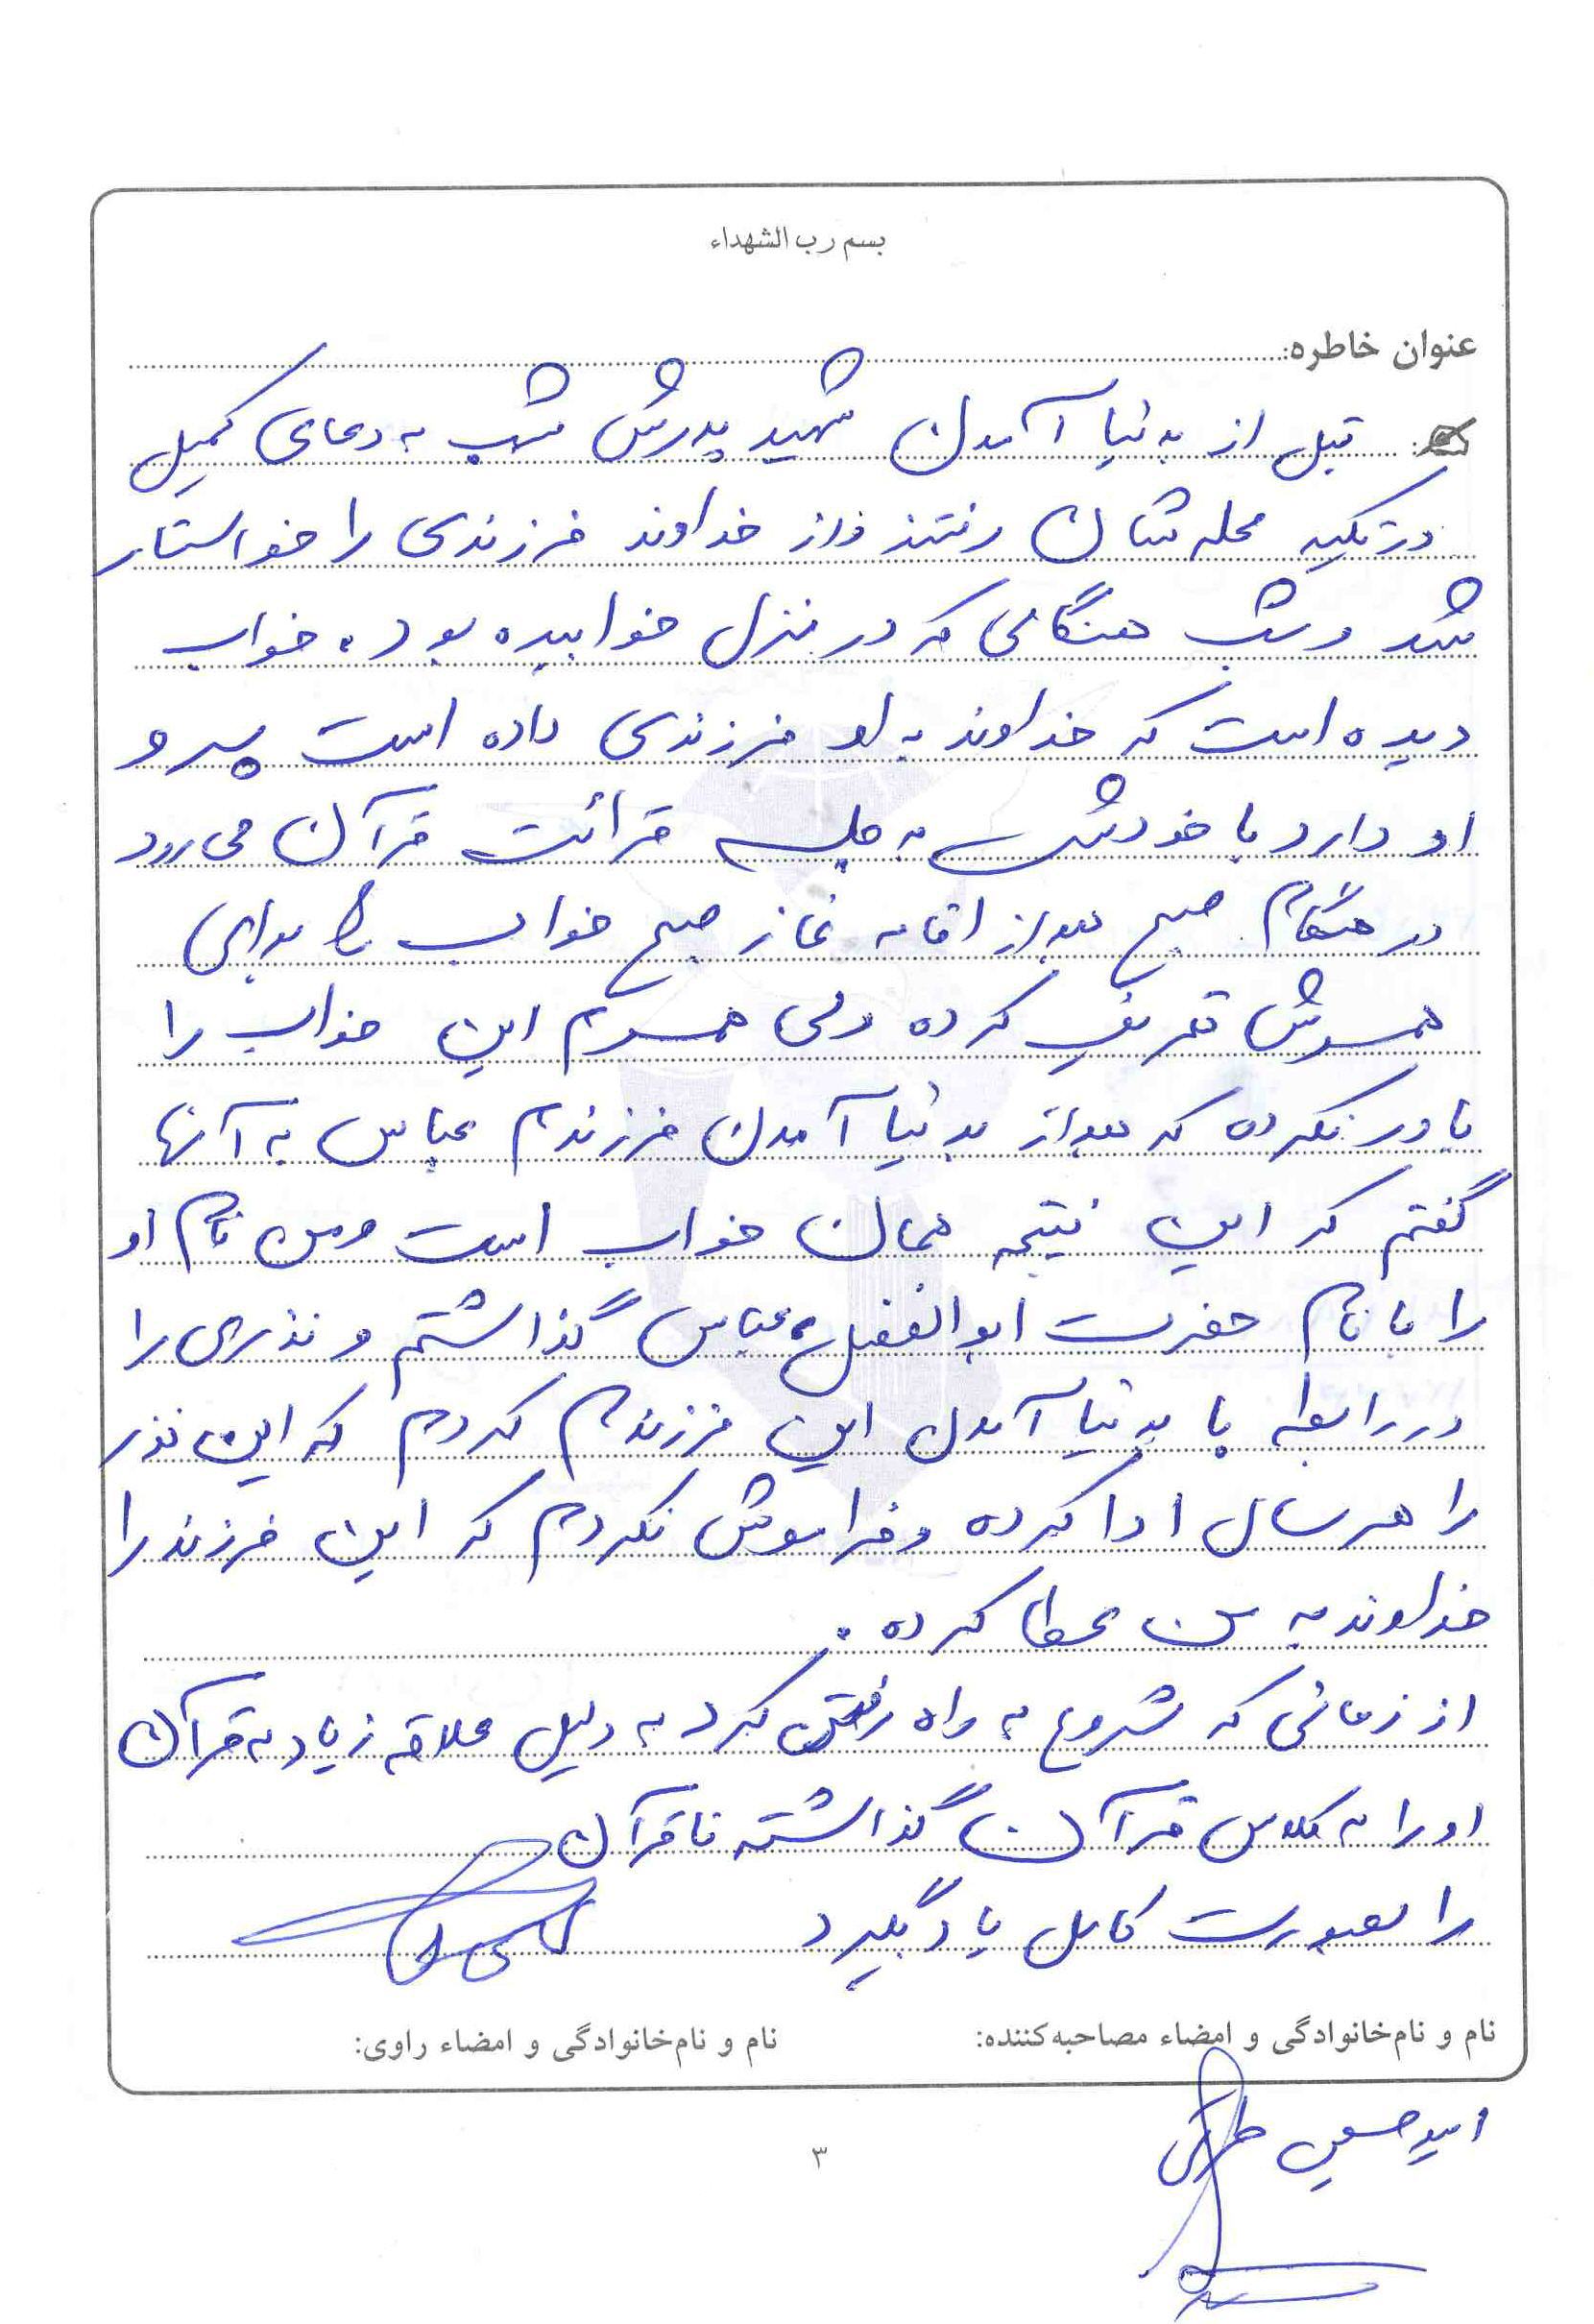 بسم رب الشهداء
عنوان خاطره:
قبل از به دنیا آمدن شهید پدرش شب به دعای کمیل
در تکیه محله شان رفتند و از خداوند فرزندی را خواستار
شد و شب هنگامی که در منزل خوابیده بود، خواب
دیده است که خداوند به او فرزندی داده است پسر و
او دارد با خودش به جلسه قرائت قرآن می رود
در هنگام صبح بعد از اقامه نماز صبح خواب را برای
همسرش تعریف کرده ولی همسرم این خواب را
باور نکرده که بعد از بدنیا آمدن فرزندم عباس به آنها
گفتم که این نتیجه همان خواب است و من نام او
را با نام حضرت ابوالفضل عباس گذاشتم و نذری را
در رابطه با بدنیا آمدن این فرزندم کردم که این نذر
را هر سال ادا کرده و فراموش نکردم که این فرزند را
خداوند به من عطا کرده.
از زمانی که شروع به راه رفتن کرد به دلیل علاقه زیاد به قرآن
او را به کلاس قرآن گذاشته تا قرآن
را بصورت کامل یاد بگیرد
نام و نام‌خانوادگی و امضاء مصاحبه‌کننده: نام و نام‌خانوادگی و امضاء راوی:
امیر حسین
۳